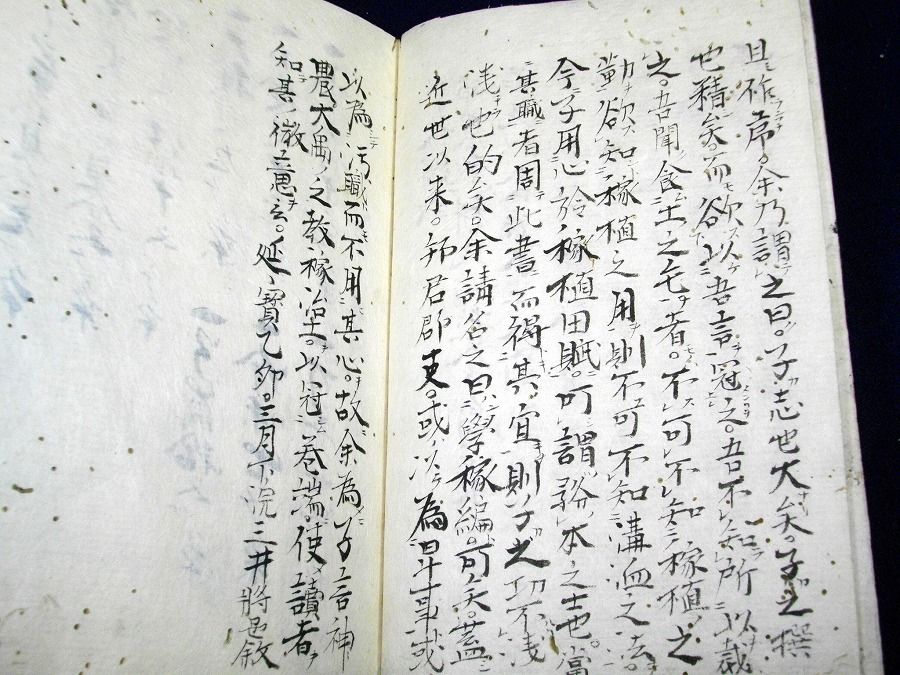 且作序余乃謂之曰子志也大矣子之撰
也精矣而欲以吾言冠之吾不知所以裁
之吾聞食土之毛者不可不知稼植之
勤欲知稼植之用則不可不知溝洫之法
今子用心於稼植田賦可謂務本之士也當
其職者周此書而得其宜則子之功不浅
浅也的矣余請名之曰學稼編可矣蓋
近世以来邦君郡吏或以為斗事或
以為汚職而不用其心故余為子言神
農大禹之教稼治土以冠巻端使讀者
知其微意云延寶乙卯三月下浣三井將